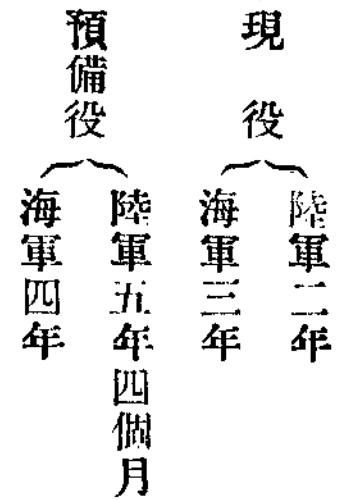 現役
陸軍二年
海軍三年
預備役
陸軍五年四個月
海軍四年